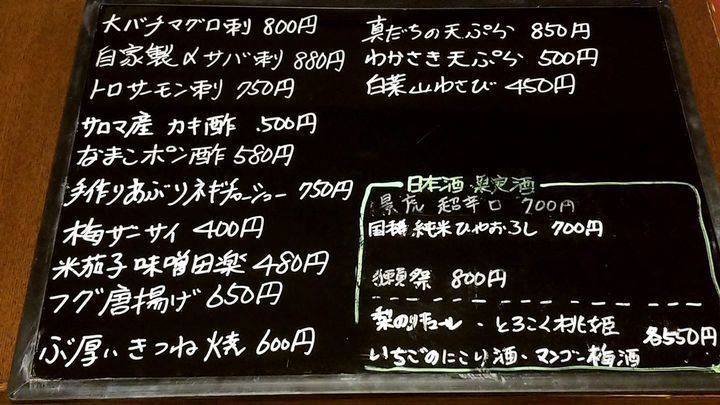 大バチマグロ刺 800円
自家製〆サバ刺 880円
トロサーモン刺 750円
サロマ産 カキ酢 500円
なまこポン酢 580円
手作りあぶりネギチャーシュー 750円
梅サニサイ 400円
米茄子味噌田楽 480円
フグ唐揚げ 650円
ぶ厚いきつね焼 600円
真だちの天ぷら 850円
わかさき天ぷら 500円
白菜山わさび 450円
日本酒 果実酒
景虎 超辛口 700円
国稀 純米ひやおろし 700円
獺祭 800円
梨のリキュール・とろこく桃姫
各550円
いちごのにごり酒・マンゴー梅酒